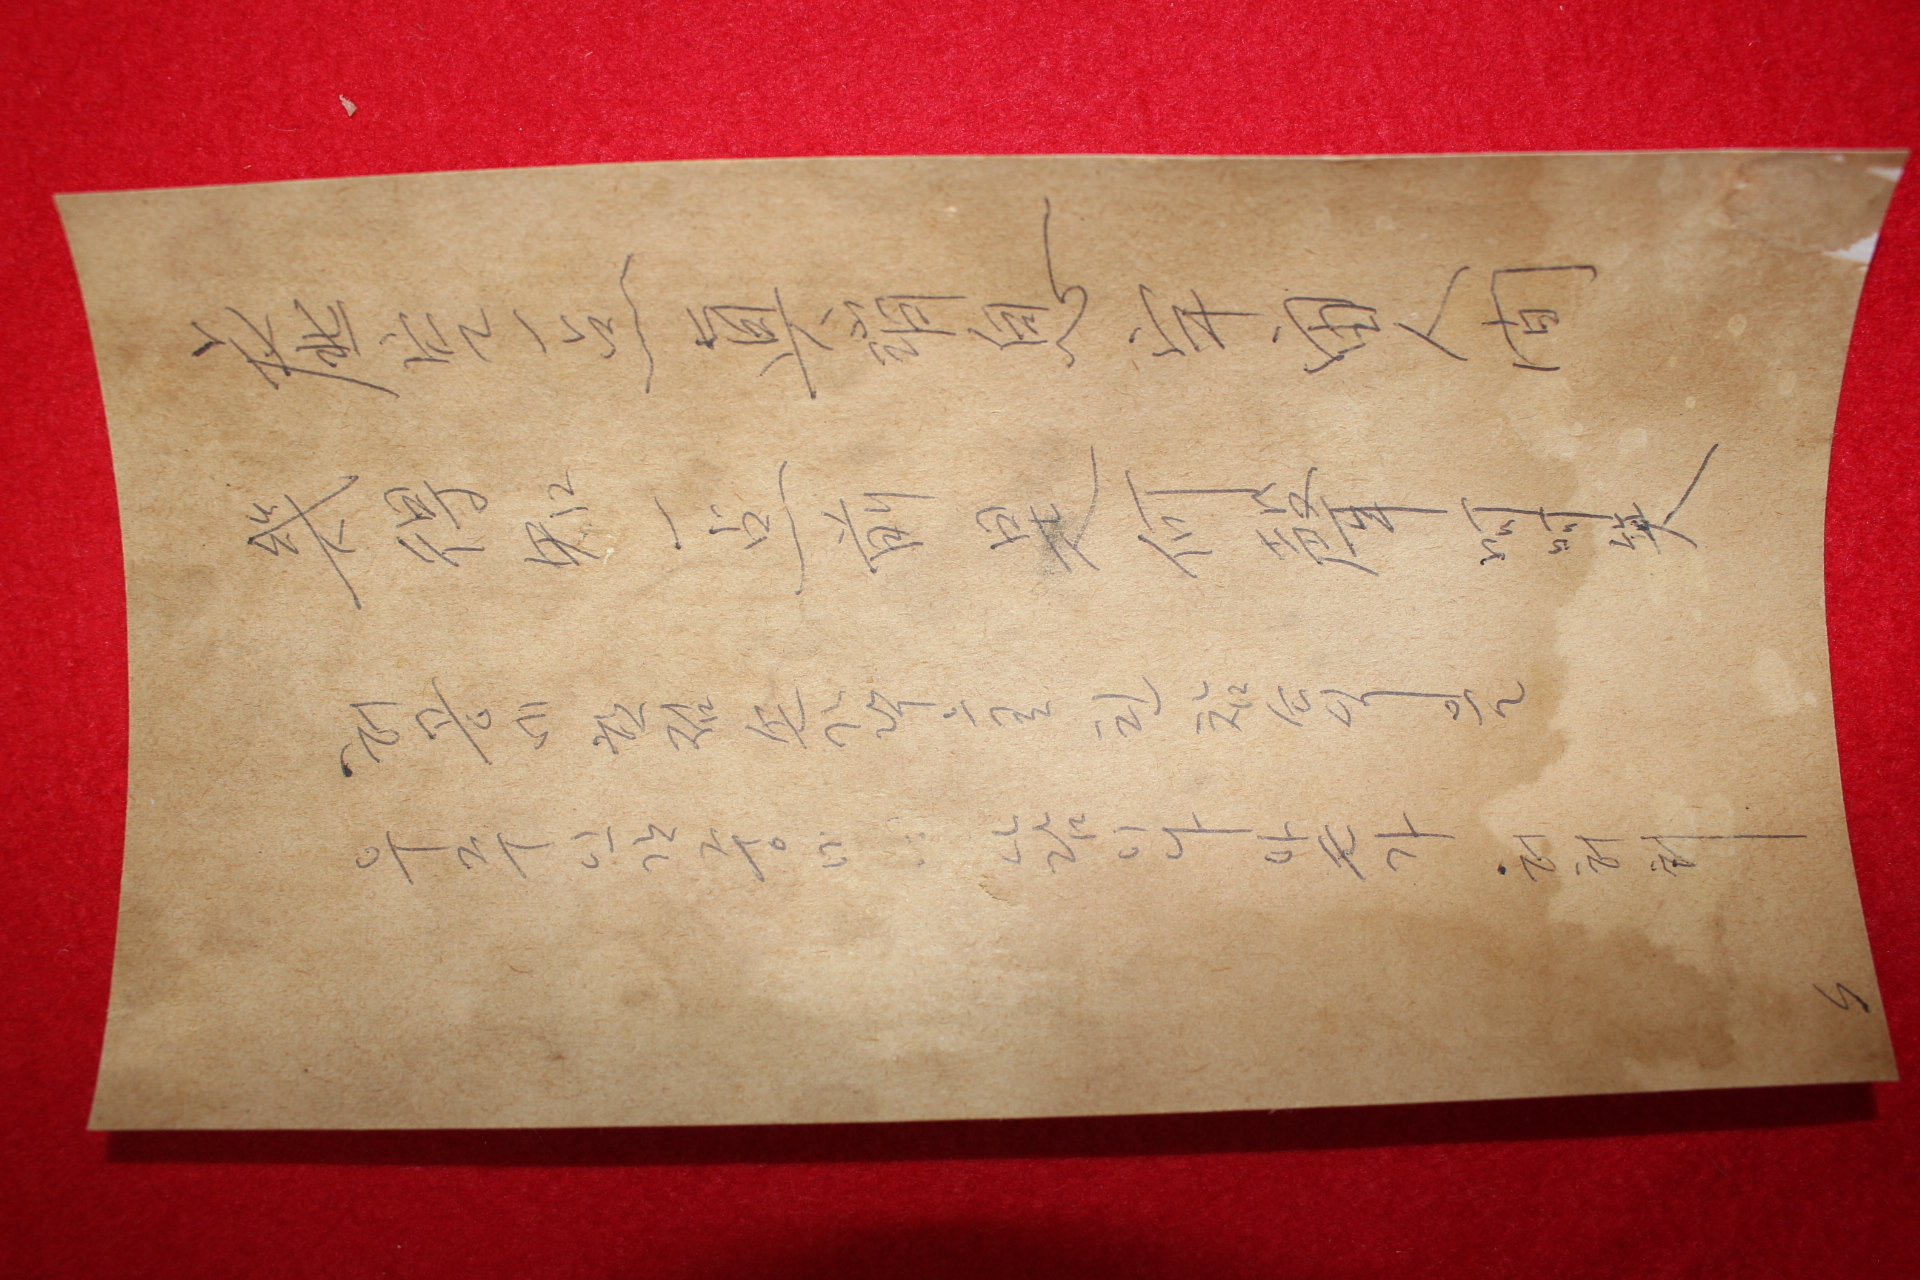 虛空一点真消息宇宙人间
幾得知一点前是何聲呵呵笑
허공에 한점 손가락으로 친 참소식을
우주인간중에 사람이나 아는가 허허허